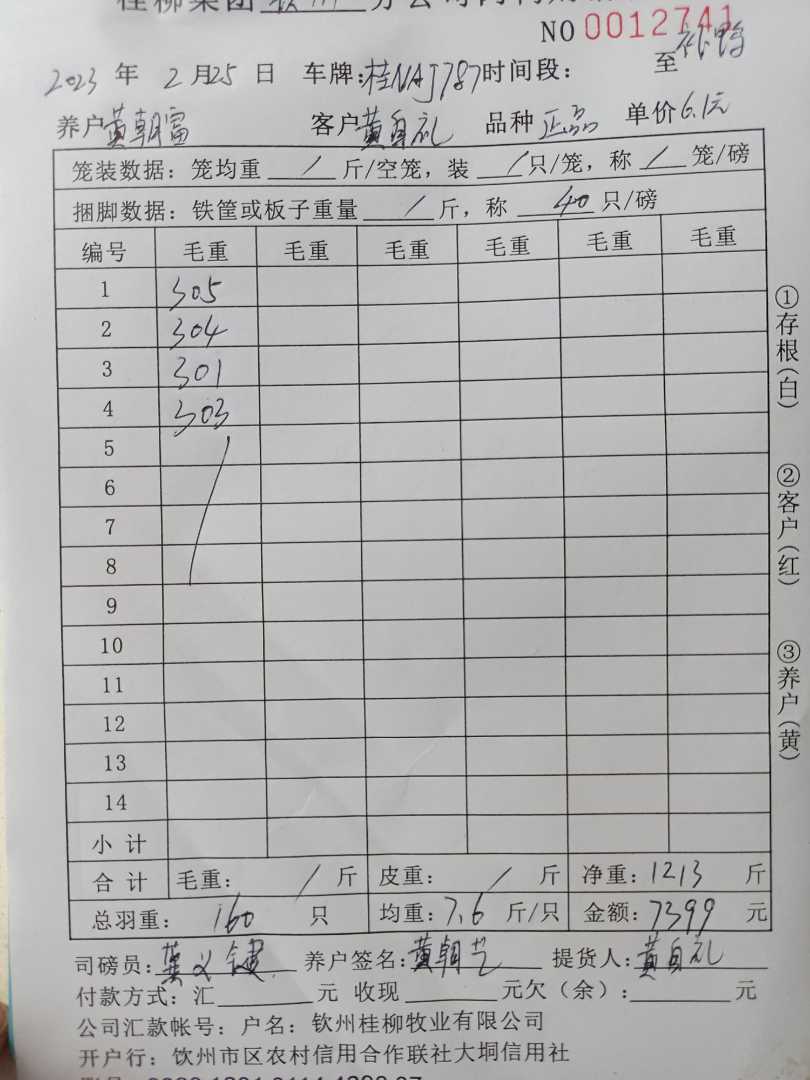 桂柳集团钦州分公司肉鸭
NO 0012741
补鸭
2023 年 2 月 25 日 车牌:桂NAJ787 时间段: 至
养户黄朝富 客户黄自礼 品种 正品 单价6.1元
笼装数据: 笼均重 / 斤/空笼, 装 / 只/笼, 称 / 笼/磅
捆脚数据: 铁筐或板子重量 / 斤, 称 40 只/磅
编号 毛重 毛重 毛重 毛重 毛重 毛重
1 305
2 304
3 301
4 303
5
6
7
8
9
10
11
12
13
14
小 计
合 计 毛重: / 斤 皮重: / 斤 净重: 1213 斤
总羽重: 160 只 均重: 7.6 斤/只 金额: 7399 元
司磅员: 养户签名: 黄朝艺 提货人: 黄自礼
付款方式: 汇 元 收现 元欠(余): 元
公司汇款帐号: 户名: 钦州桂柳牧业有限公司
开户行: 饮州市区农村信用合作联社大垌信用社
①存根(白)
②客户(红)
③养户(黄)